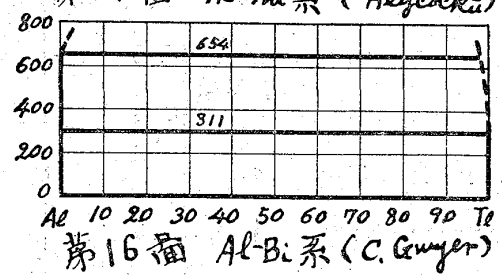 800
600
400
200
0
654
311
Al 10 20 30 40 50 60 70 80 90 Tl
第16圖 Al-Bi系(C. Gwyer)